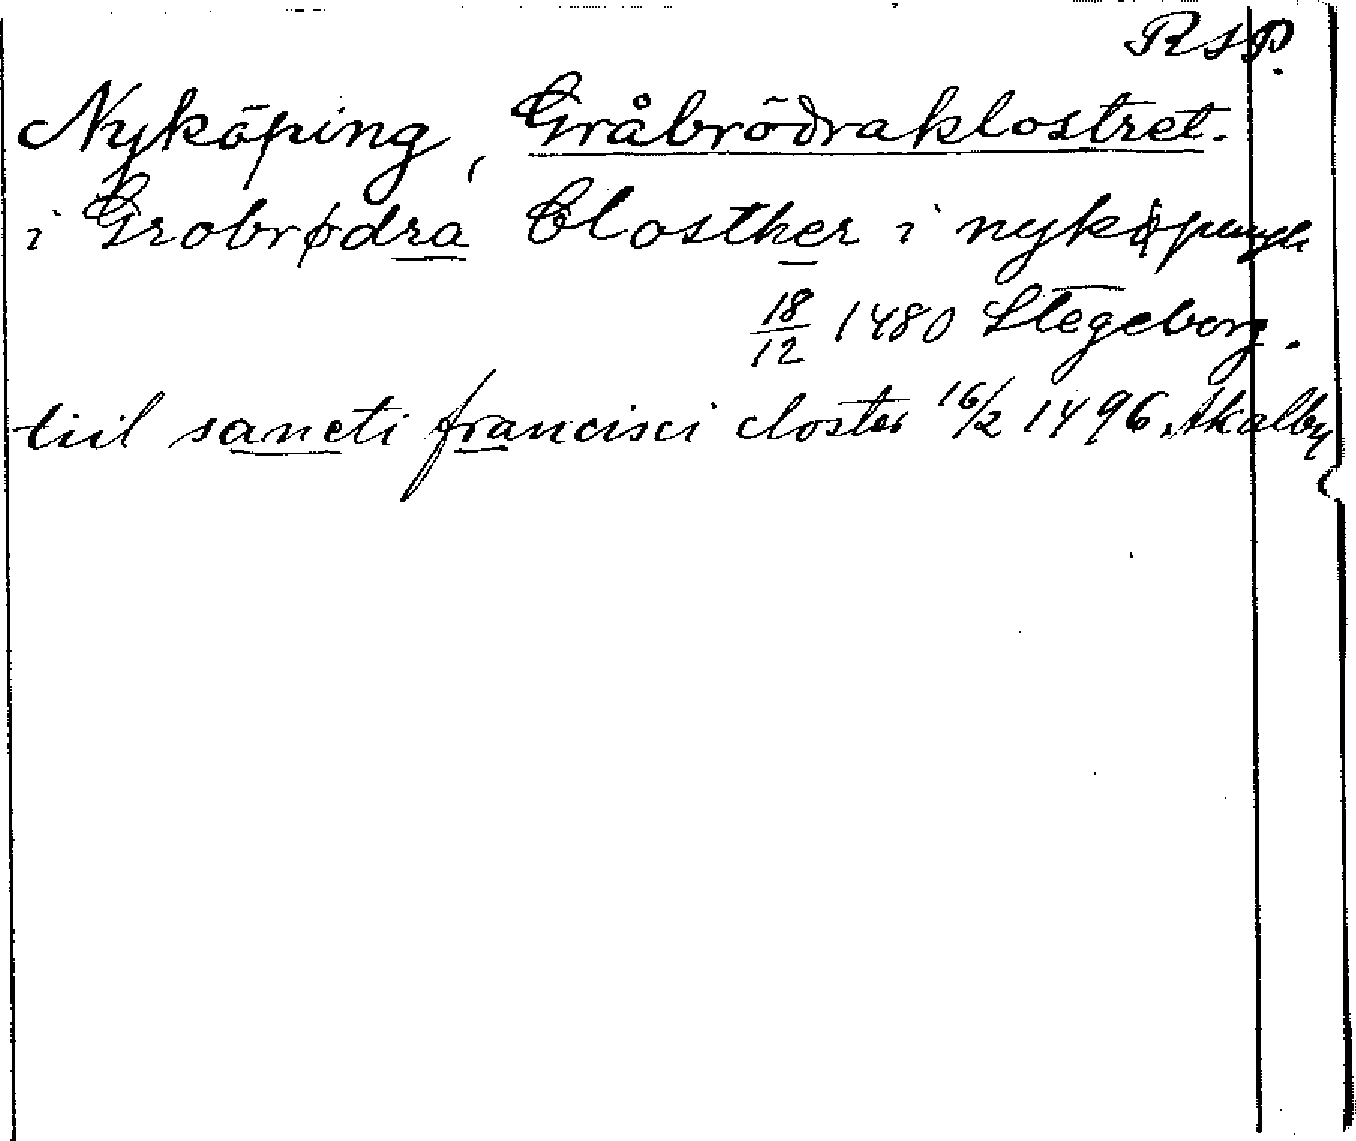 RSP.
Nyköping, Gråbrödraklostret.
i Grobrødra Closther i nykøpungh
18/12 1480 Stegeborg.
tiil sancti francisci closter 16/2 1496 Åkalby